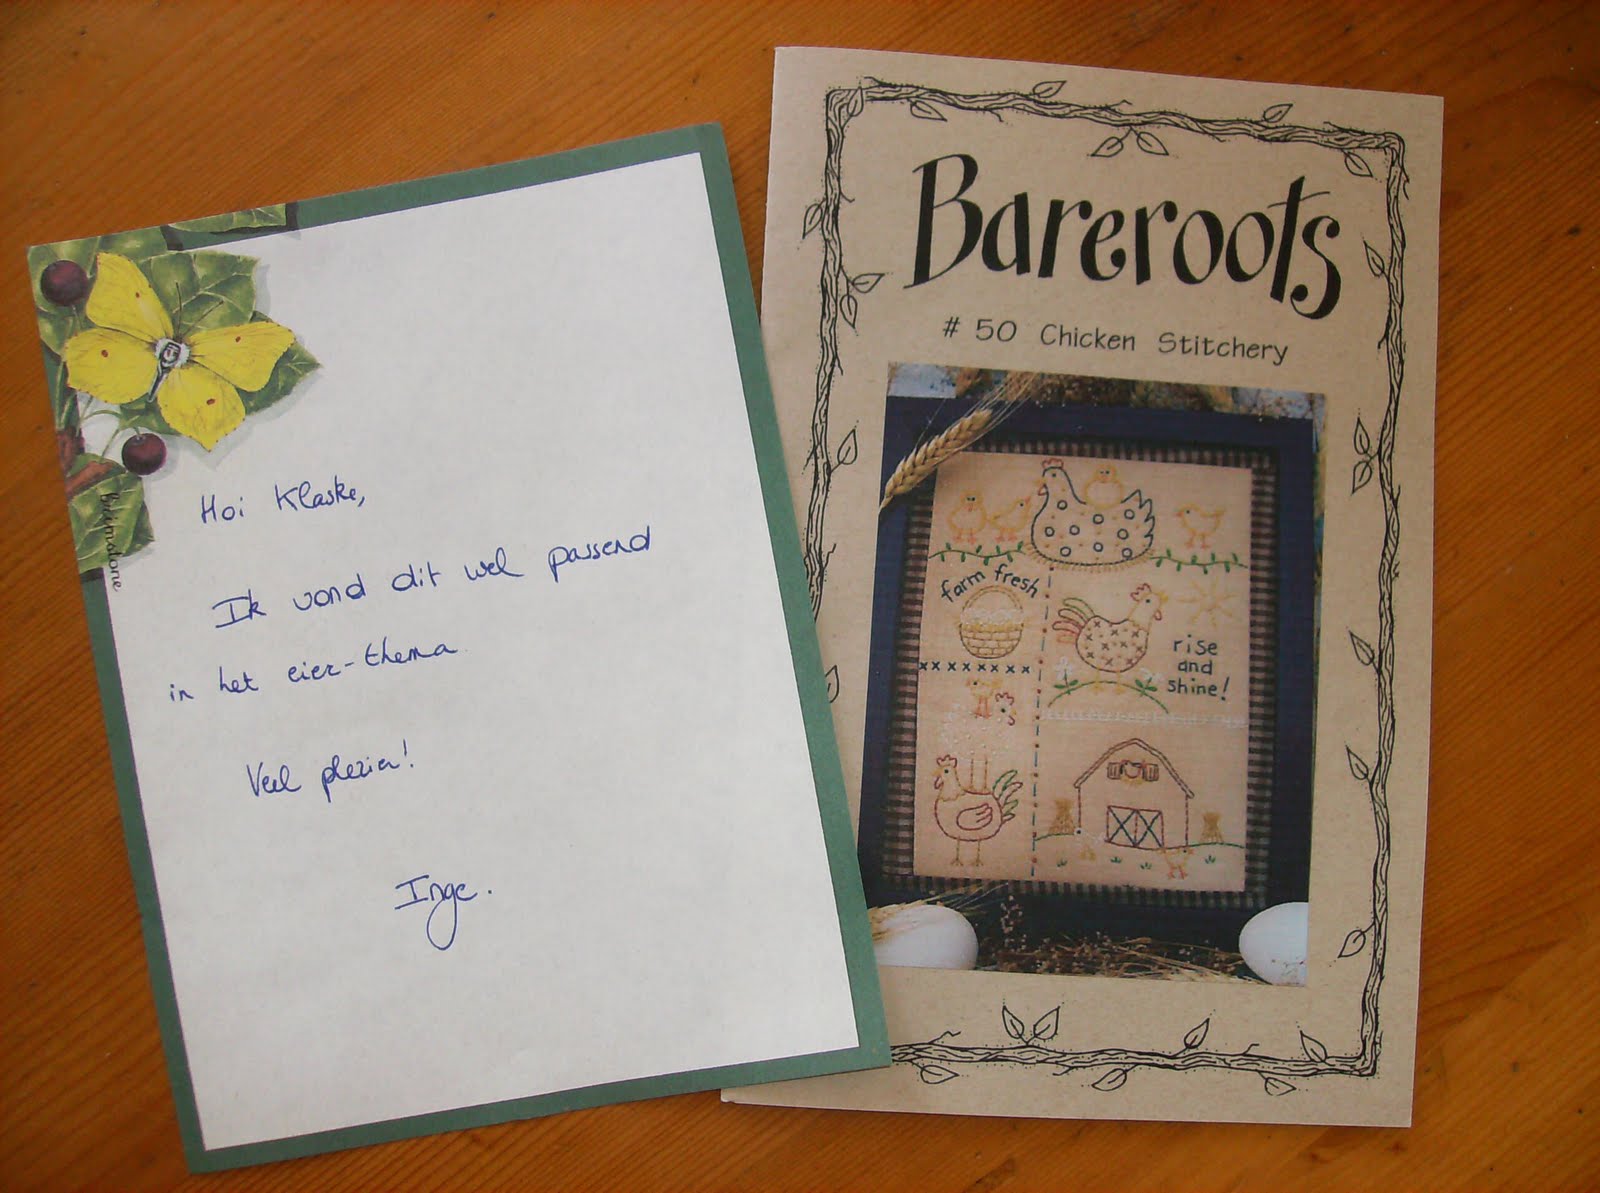 brimstone
Hoi Klaske,
Ik vond dit wel passend
in het eier-thema
Veel plezier!
Inge.
Bareroots
# 50 Chicken Stitchery
farm fresh
rise
and
shine!